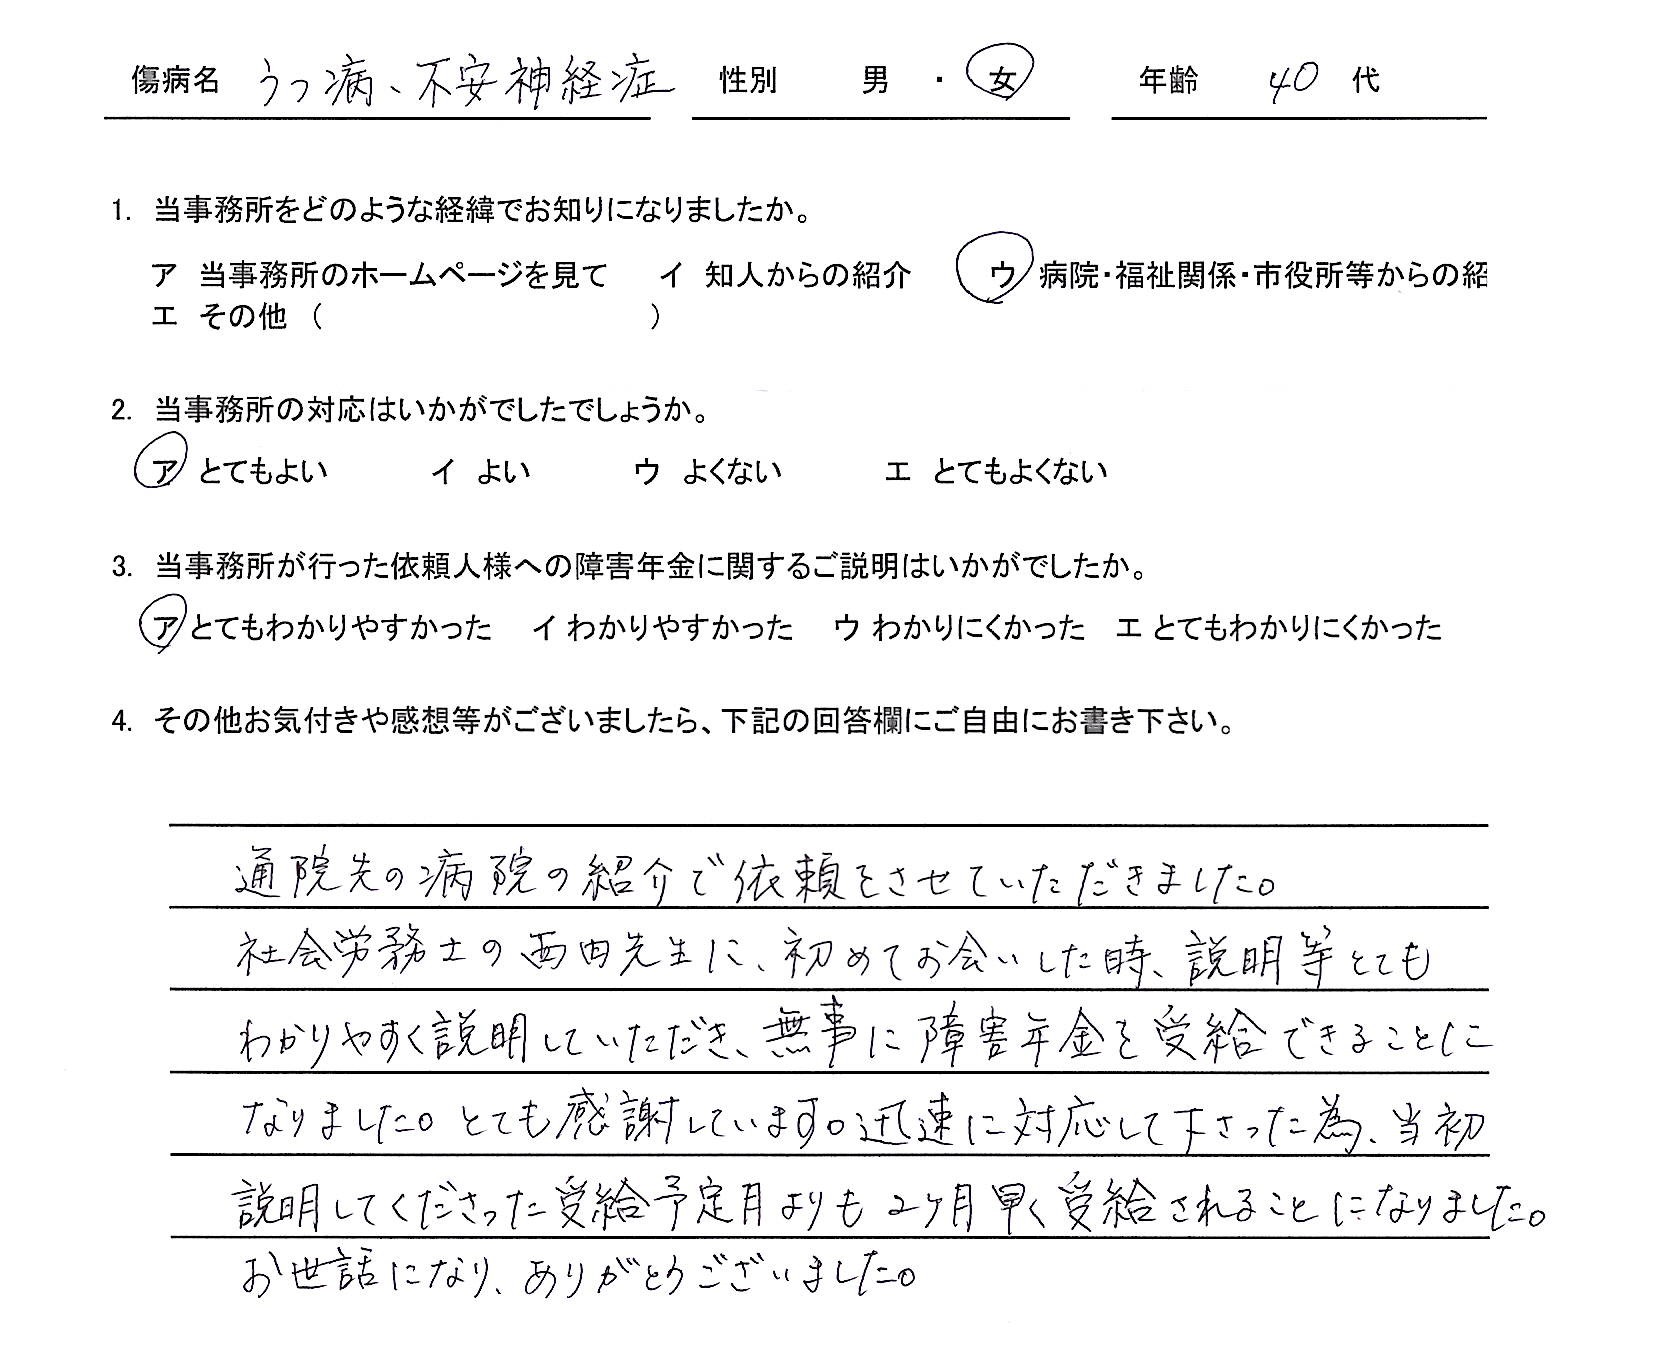 傷病名 うつ病、不安神経症 性別 男 ・ 女 年齢 40 代
1. 当事務所をどのような経緯でお知りになりましたか。
ア 当事務所のホームページを見て イ 知人からの紹介 ウ 病院・福祉関係・市役所等からの紹
エ その他 ( )
2. 当事務所の対応はいかがでしたでしょうか。
ア とてもよい イ よい ウ よくない エ とてもよくない
3. 当事務所が行った依頼人様への障害年金に関するご説明はいかがでしたか。
ア とてもわかりやすかった イ わかりやすかった ウ わかりにくかった エ とてもわかりにくかった
4. その他お気付きや感想等がございましたら、下記の回答欄にご自由にお書き下さい。
通院先の病院の紹介で依頼をさせていただきました。
社会労務士の西田先生に、初めてお会いした時、説明等とても
わかりやすく説明していただき、無事に障害年金を受給できることに
なりました。とても感謝しています。迅速に対応して下さった為、当初
説明してくださった受給予定月よりも2ケ月早く受給されることになりました。
お世話になり、ありがとうございました。